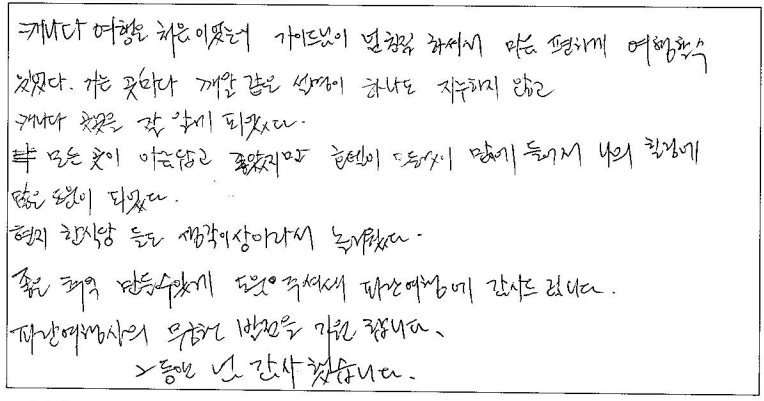 캐나다 여행은 처음이였는데 가이드님이 넘 친절하셔서 마음 편하게 여행할수
있었다. 가는 곳마다 깨알 같은 설명이 하나도 지루하지 않고
캐나다 곳곳을 잘 알게 되었다.
모든 곳이 아름답고 좋았지만 호텔이 맘에 들어서 나의 힐링에
많은 도움이 되었다.
현지 한식당 들도 생각이상이라서 놀라웠다.
좋은 추억 만들수있게 도움 주셔서 파란여행에 감사드립니다.
파란여행사의 무궁한 발전을 기원 합니다.
그동안 넘 감사했습니다.